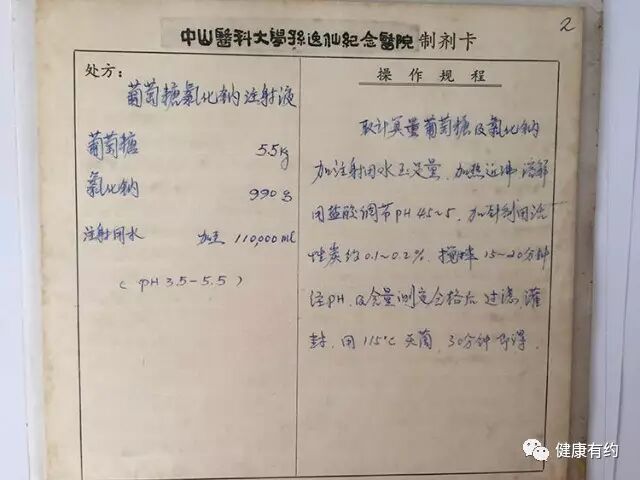 2
中山醫科大學孫逸仙紀念醫院 制剂卡
处方：
葡萄糖氯化钠注射液
葡萄糖 5.5kg
氯化钠 990g
注射用水 加至 110,000ml
(pH 3.5-5.5)
操作规程
取计算量葡萄糖及氯化钠
加注射用水至足量，加热近沸溶解
用盐酸调节pH 4.5~5，加针剂用活
性炭约0.1~0.2%，搅拌15~20分钟
经pH及含量测定合格后，过滤，灌
封，用115°C灭菌，30分钟即得。
健康有约